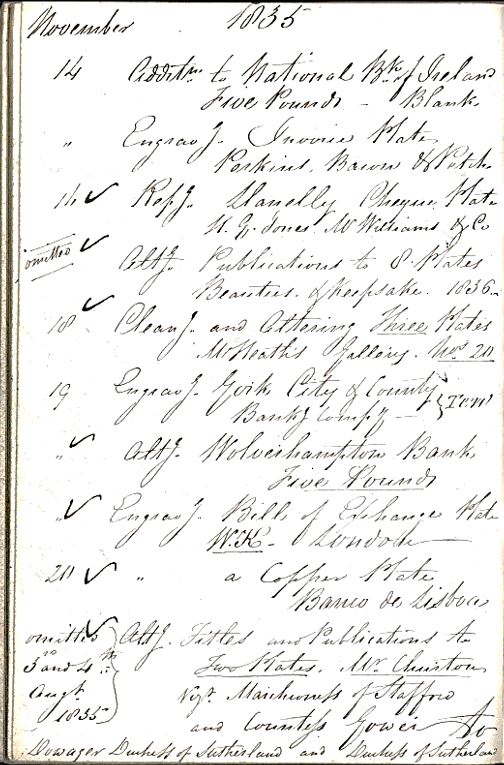 November 1835
14 Additns. to National Bk. of Ireland
Five Pounds – Blank
" Engravg. Invoice Plate
Perkins, Bacon & Petch
14 ✓ Repg. Llanelly Cheque Plate
H. G. Jones. McWilliams & Co
omitted ✓ Altg. Publications to 8 Plates
Beauties. & Keepsake. 1836 –
18 ✓ Cleang. and Altering Three Plates
Mr Heath's Gallery. No. 20
19 Engravg. York City & County
Bankg. Compy – } Ten
" ✓ Altg. Wolverhampton Bank
Five Pounds
" ✓ Engravg. Bills of Exchange Plate
W.K. – London
20 ✓ " a Copper Plate
Banco de Lisboa
omitted ✓ Altg. Titles and Publications to
3rd and 4th Two Plates. Mr.
Augt. Marchioness of Stafford
1835 and Countess Gower to
Dowager Duchess of Sutherland and Duchess of Sutherland